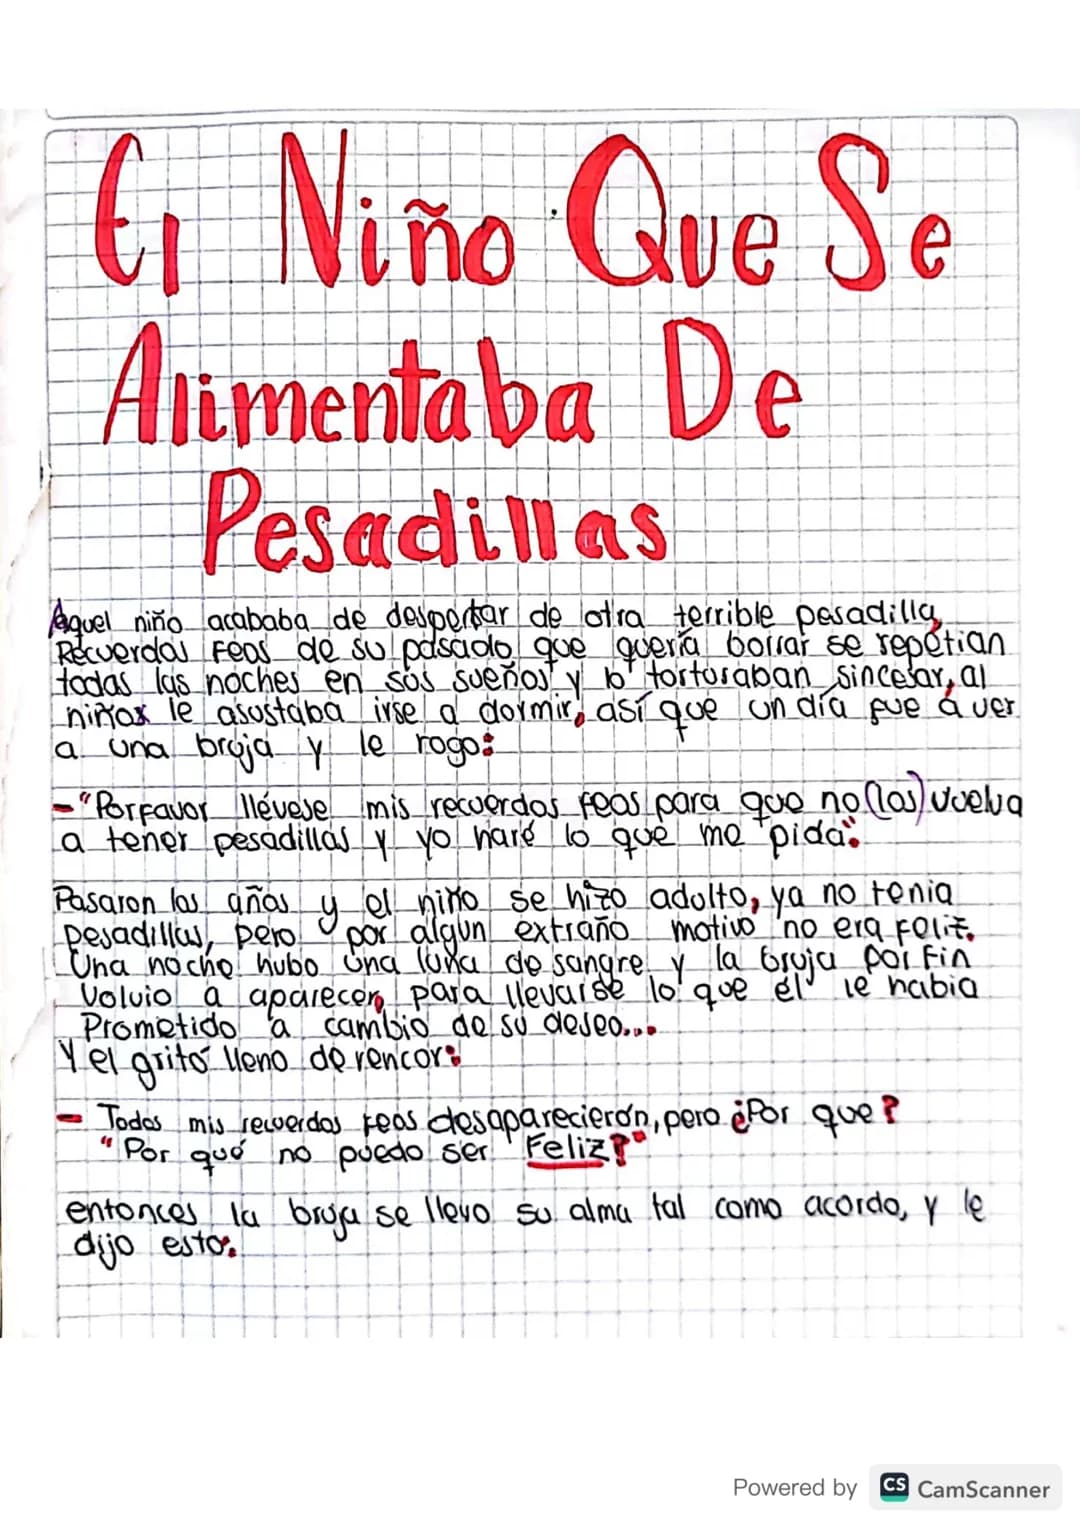 El Niño Que Se
Alimentaba De
Pesadillas
Aquel niño acababa de despertar de otra terrible pesadilla,
Recuerdos Feos de su pasado que quería borrar se repetian
todas las noches en sus sueños y lo torturaban sincesar, al
niño le asustaba irse a dormir, así que un día fue a ver
a una bruja y le rogo:
-"Porfavor llévese mis recuerdos feos para que no (los) vuelva
a tener pesadillas y yo haré lo que me pida".
Pasaron los años y el niño se hizo adulto, ya no tenia
pesadillas, pero por algun extraño motivo no era feliz.
Una noche hubo una luna de sangre y la bruja por fin
Volvio a aparecer, para llevarse lo que él le habia
Prometido a cambio de su deseo...
Y el gritó lleno de rencor:
- Todos mis recuerdos feos desaparecierón, pero ¿Por que?
"Por qué no puedo ser Feliz?"
entonces la bruja se llevo su alma tal como acordo, y le
dijo esto:
Powered by CS CamScanner